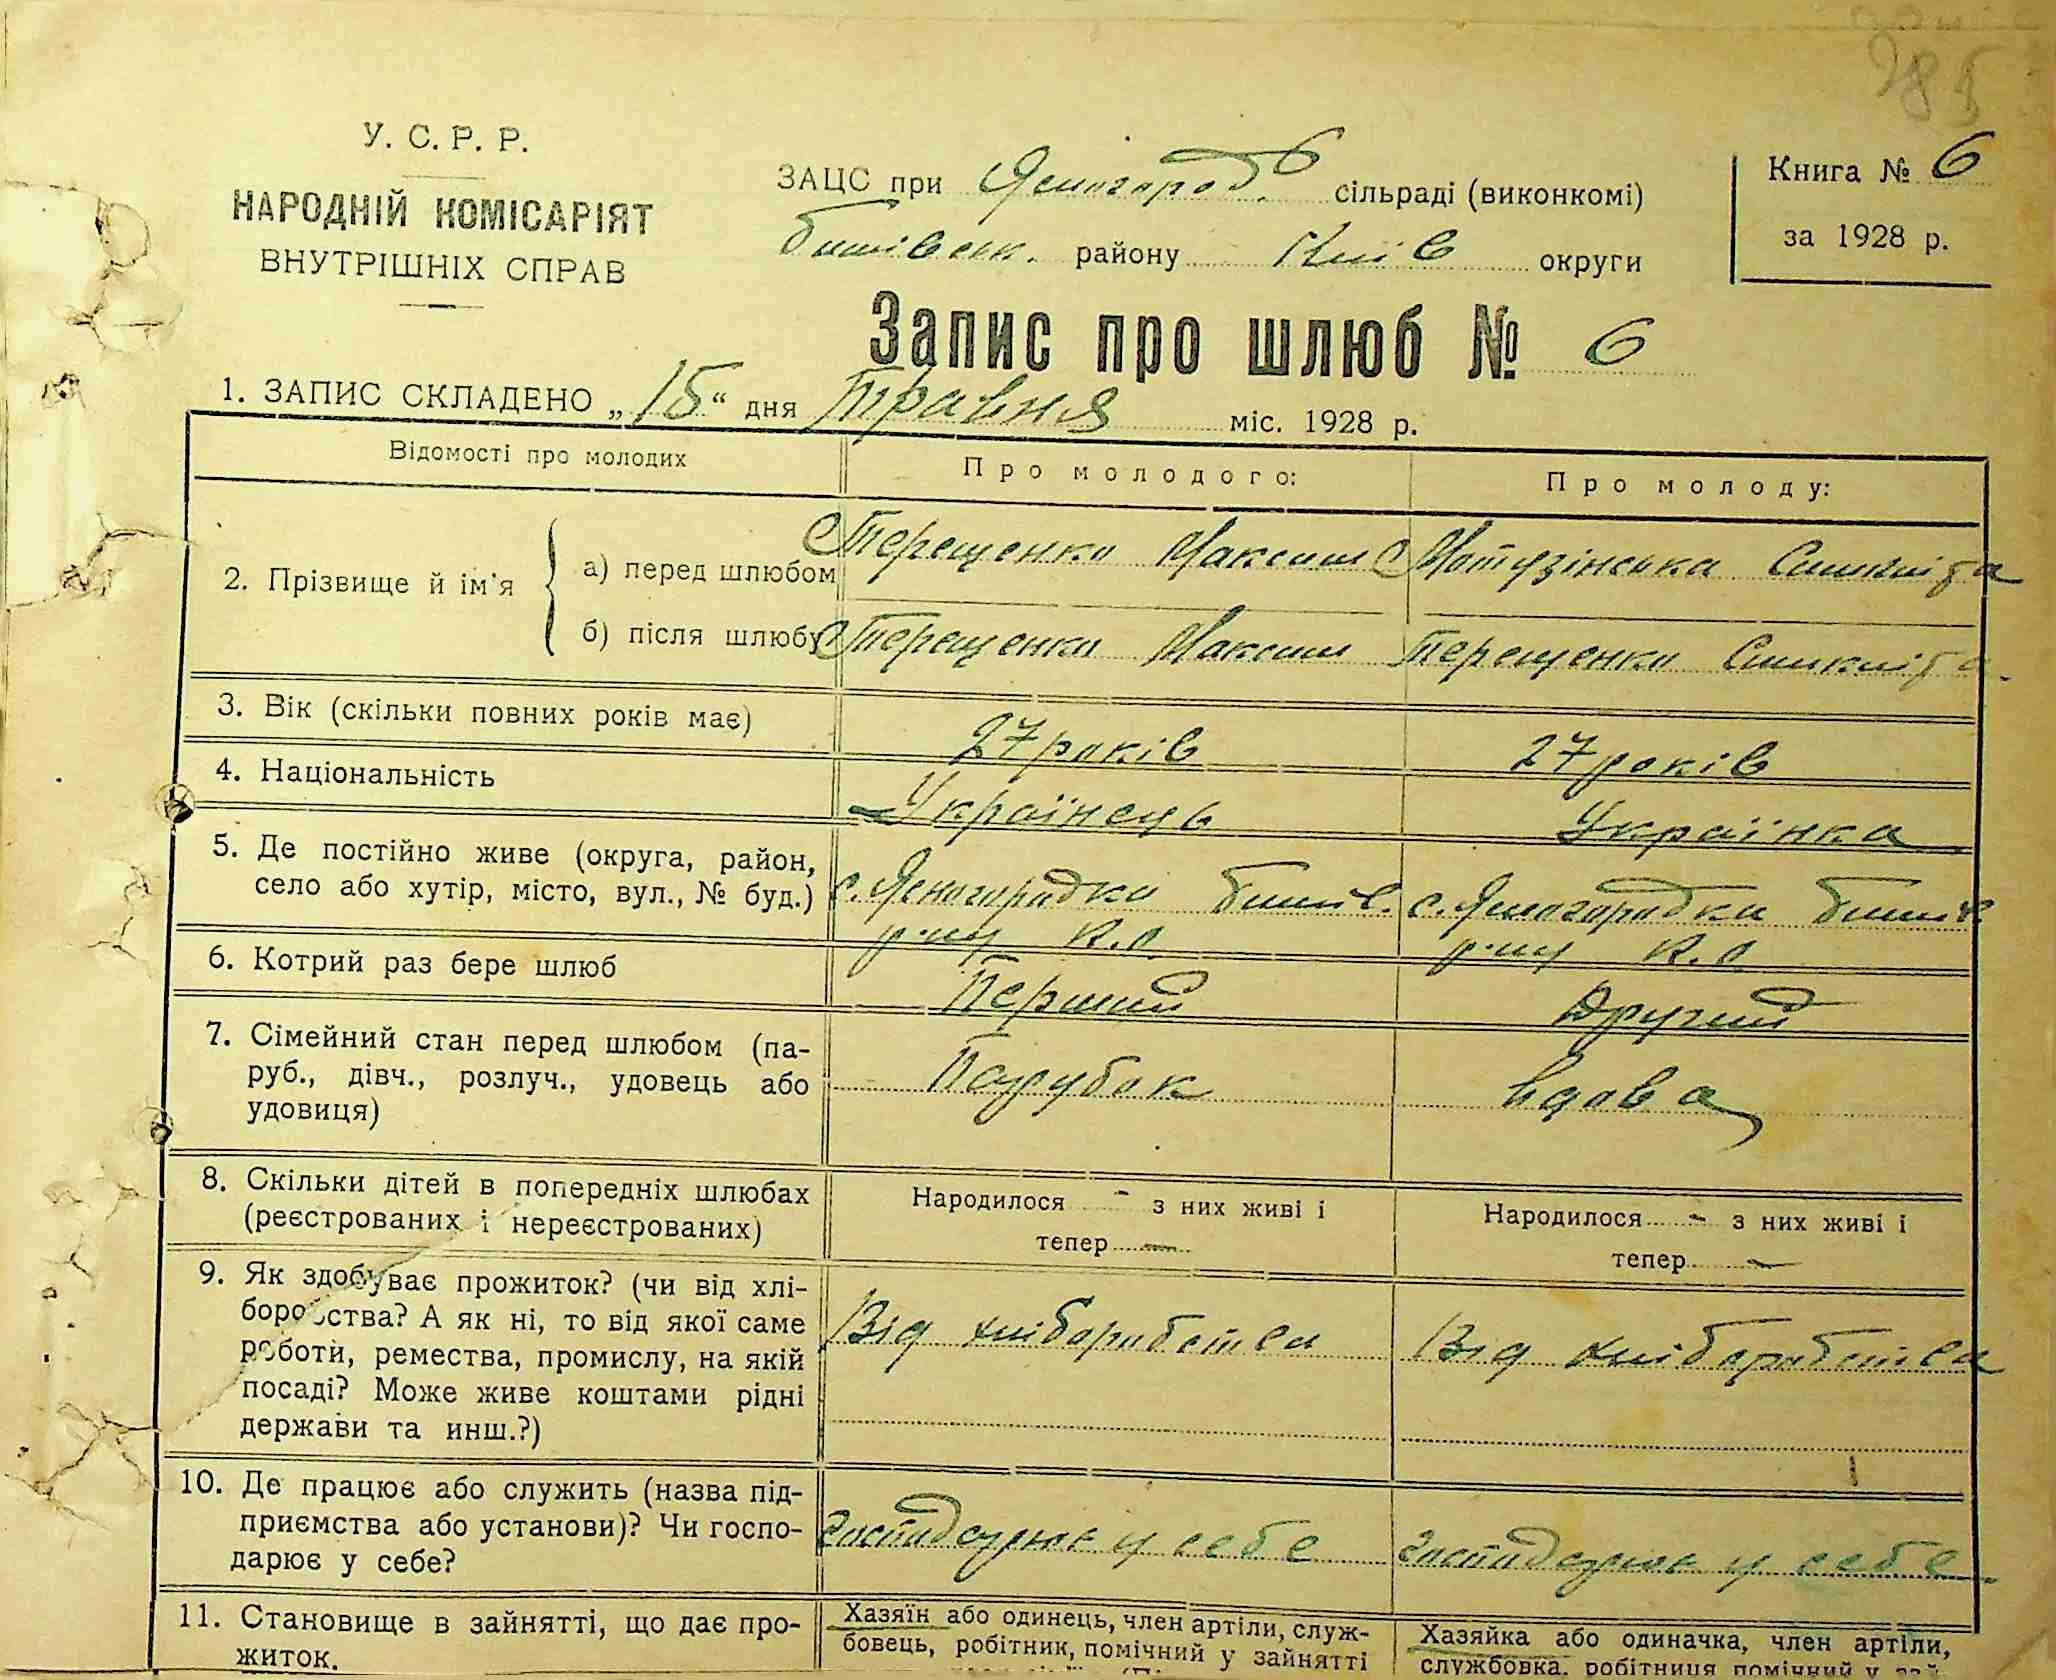 285
У. С. Р. Р.
НАРОДНІЙ КОМІСАРІЯТ
ВНУТРІШНІХ СПРАВ
ЗАЦС при Ясногород. сільраді (виконкомі)
Бишівськ. району Київ округи
Книга № 6
за 1928 р.
Запис про шлюб № 6
1. ЗАПИС СКЛАДЕНО „ 15 “ дня Травня міс. 1928 р.
Відомості про молодих
Про молодого:
Про молоду:
2. Прізвище й ім'я
а) перед шлюбом
Терещенко Максим
Мотузінська
б) після шлюбу
Терещенко Максим
Терещенко
3. Вік (скільки повних років має)
27 років
27 років
4. Національність
Українець
Українка
5. Де постійно живе (округа, район,
село або хутір, місто, вул., № буд.)
с. Ясногородка Бишів.
р-ну К.о.
с. Ясногородка Бишів
р-ну К.о.
6. Котрий раз бере шлюб
Перший
Другий
7. Сімейний стан перед шлюбом (па-
руб., дівч., розлуч., удовець або
удовиця)
Парубок
вдова
8. Скільки дітей в попередніх шлюбах
(реєстрованих і нереєстрованих)
Народилося - з них живі і
тепер —
Народилося - з них живі і
тепер —
9. Як здобуває прожиток? (чи від хлі-
боробства? А як ні, то від якої саме
роботи, ремества, промислу, на якій
посаді? Може живе коштами рідні
держави та инш.?)
Від хліборобства
Від хліборобства
10. Де працює або служить (назва під-
приємства або установи)? Чи госпо-
дарює у себе?
Господарює у себе
Господарює у себе
11. Становище в зайнятті, що дає про-
житок.
Хазяїн або одинець, член артіли, служ-
бовець, робітник, помічний у зайнятті
Хазяйка або одиначка, член артіли,
службовка, робітниця помічний у зай